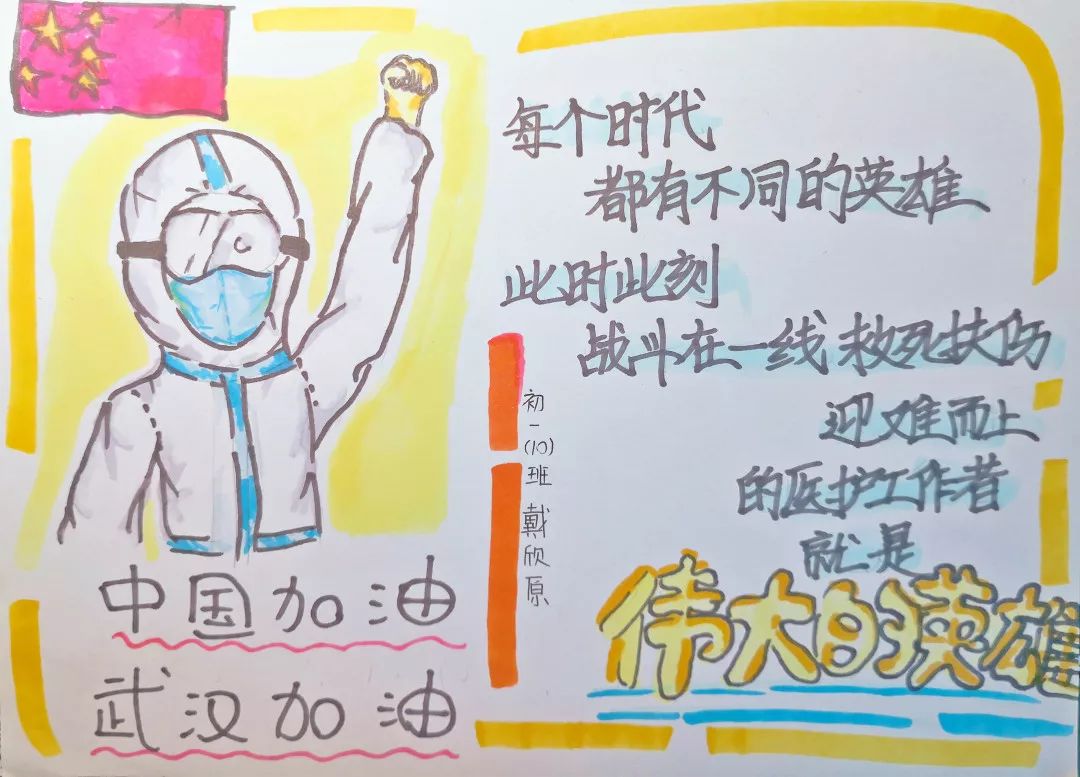 每个时代
都有不同的英雄
此时此刻
战斗在一线 救死扶伤
迎难而上
的医护工作者
就是
伟大的英雄
初一(10)班 戴欣原
中国加油
武汉加油